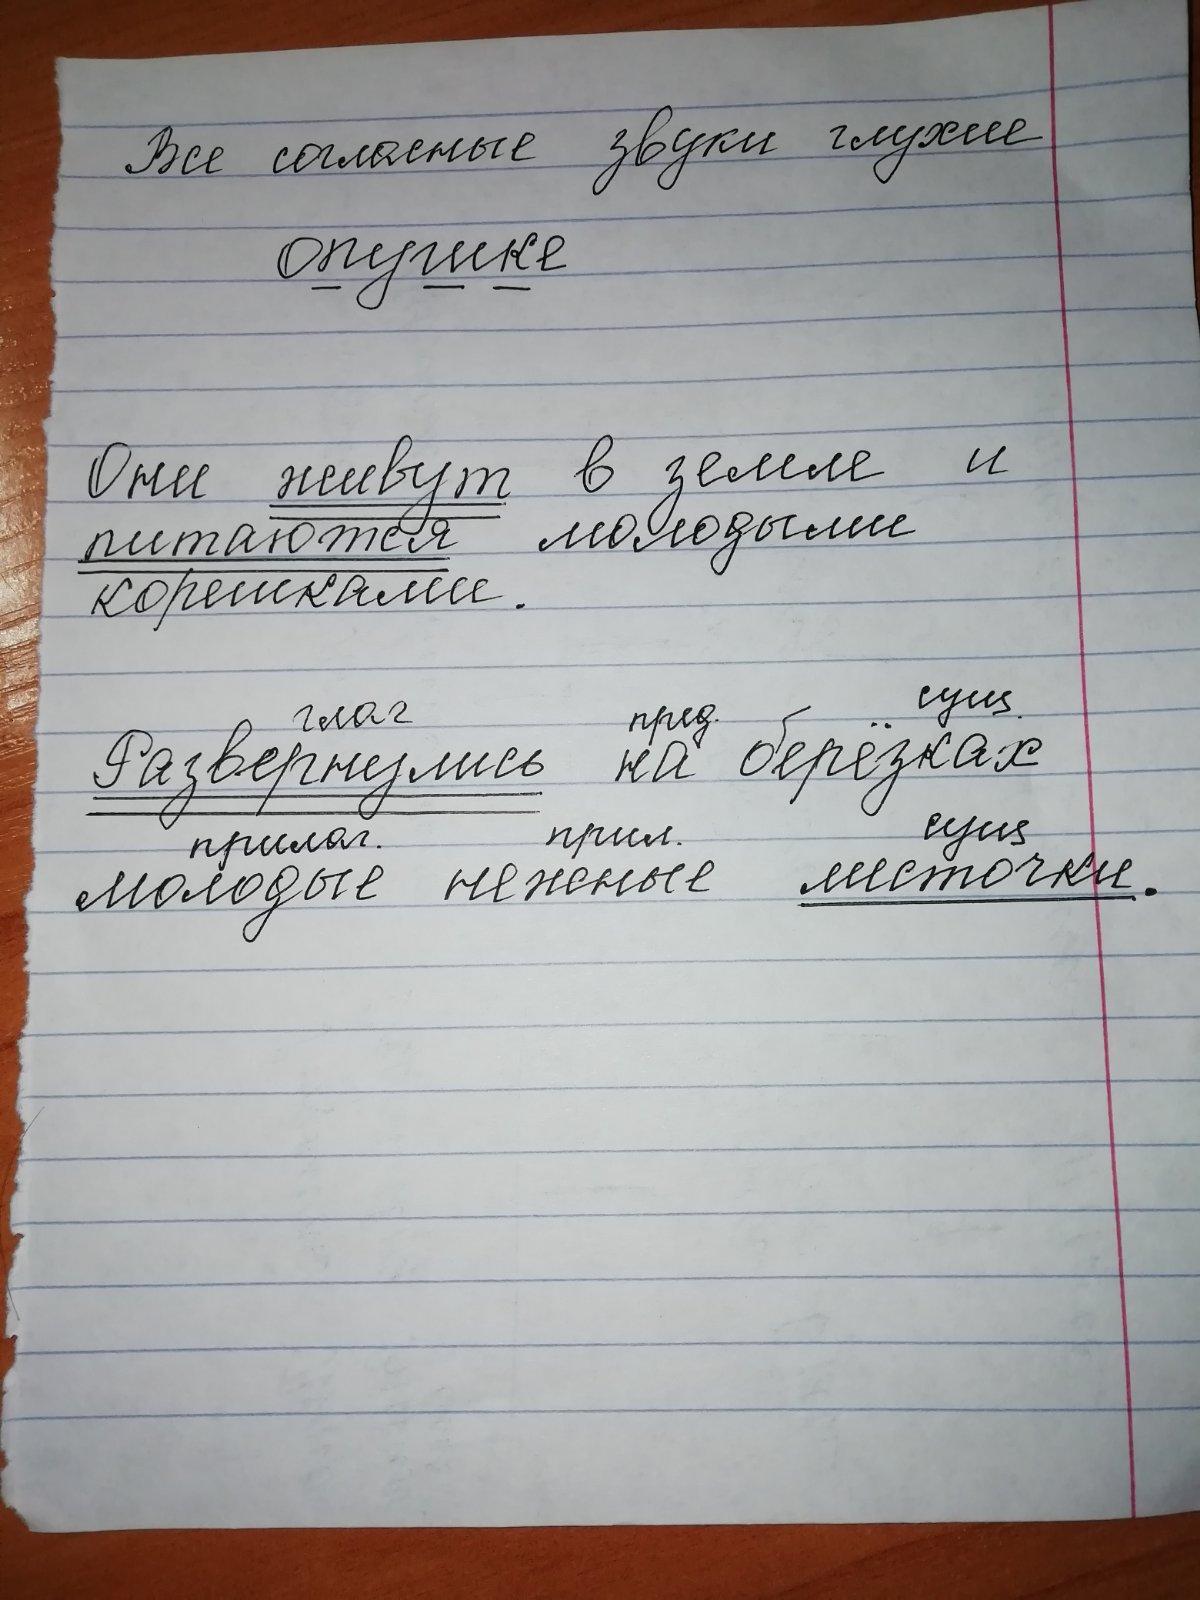 Все согласные звуки глухие
опушке
Они живут в земле и
питаются молодыми
корешками.
глаг пред. сущ.
Развернулись на берёзках
прилаг. прил. сущ
молодые нежные листочки.